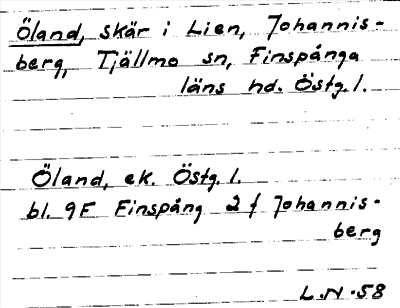 Öland, skär i Lien, Johannis-
berg, Tjällmo sn, Finspånga
läns hd. Östg. l.
Öland, ek. Östg. l.
bl. 9F Finspång 2 f Johannis-
berg
L.N. 58